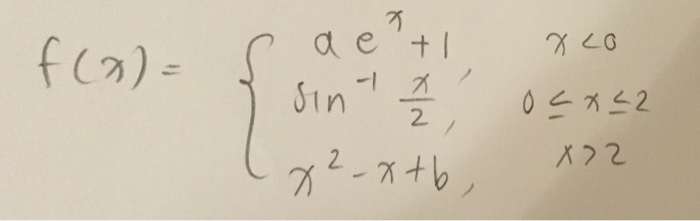 f(x) = { ae^x + 1, x < 0
sin^-1 x/2, 0 ≤ x ≤ 2
x^2 - x + b, x > 2